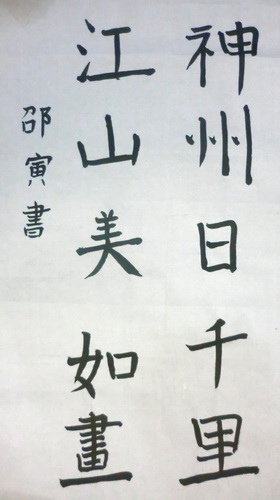 神州日千里
江山美如畫
邵寅書